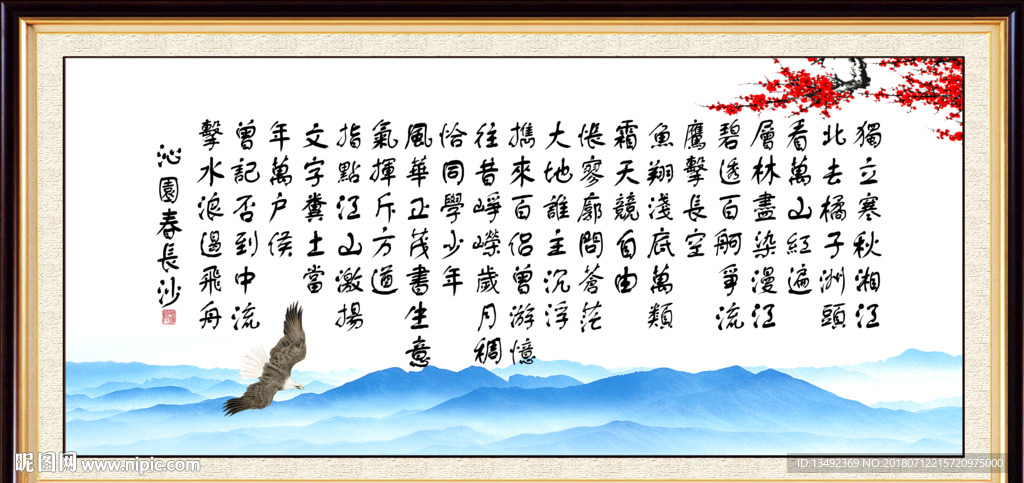 獨立寒秋湘江
北去橘子洲頭
看萬山紅遍
層林盡染漫江
碧透百舸爭流
鷹擊長空
魚翔淺底萬類
霜天競自由
悵寥廓問蒼茫
大地誰主沉浮
攜來百侶曾游憶
往昔崢嶸歲月稠
恰同學少年
風華正茂書生意
氣揮斥方遒
指點江山激揚
文字糞土當
年萬户侯
曾記否到中流
擊水浪遏飛舟
沁園春長沙
昵图网 www.nipic.com
ID:13492369 NO:20180712215720975000